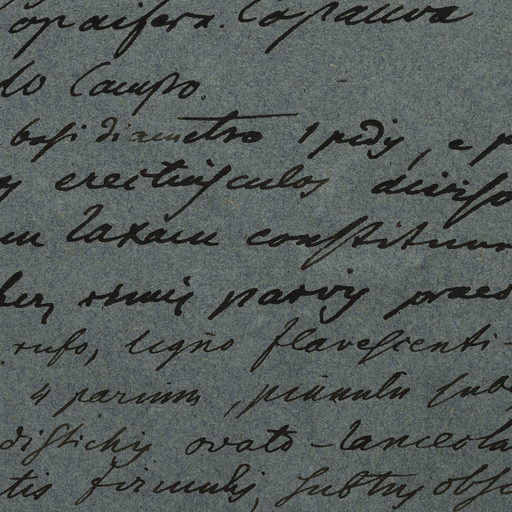 opaifera. Copaiuva
do Campo.
basi diametro 1 pedis, e p
erectiusculos diviso
m laxam constituun
ber, rimis parvis praes
rufo, ligno flavescenti-
4 parium, pinnulis sub
distichis ovato-lanceola
tis firmulis, subtus obsc